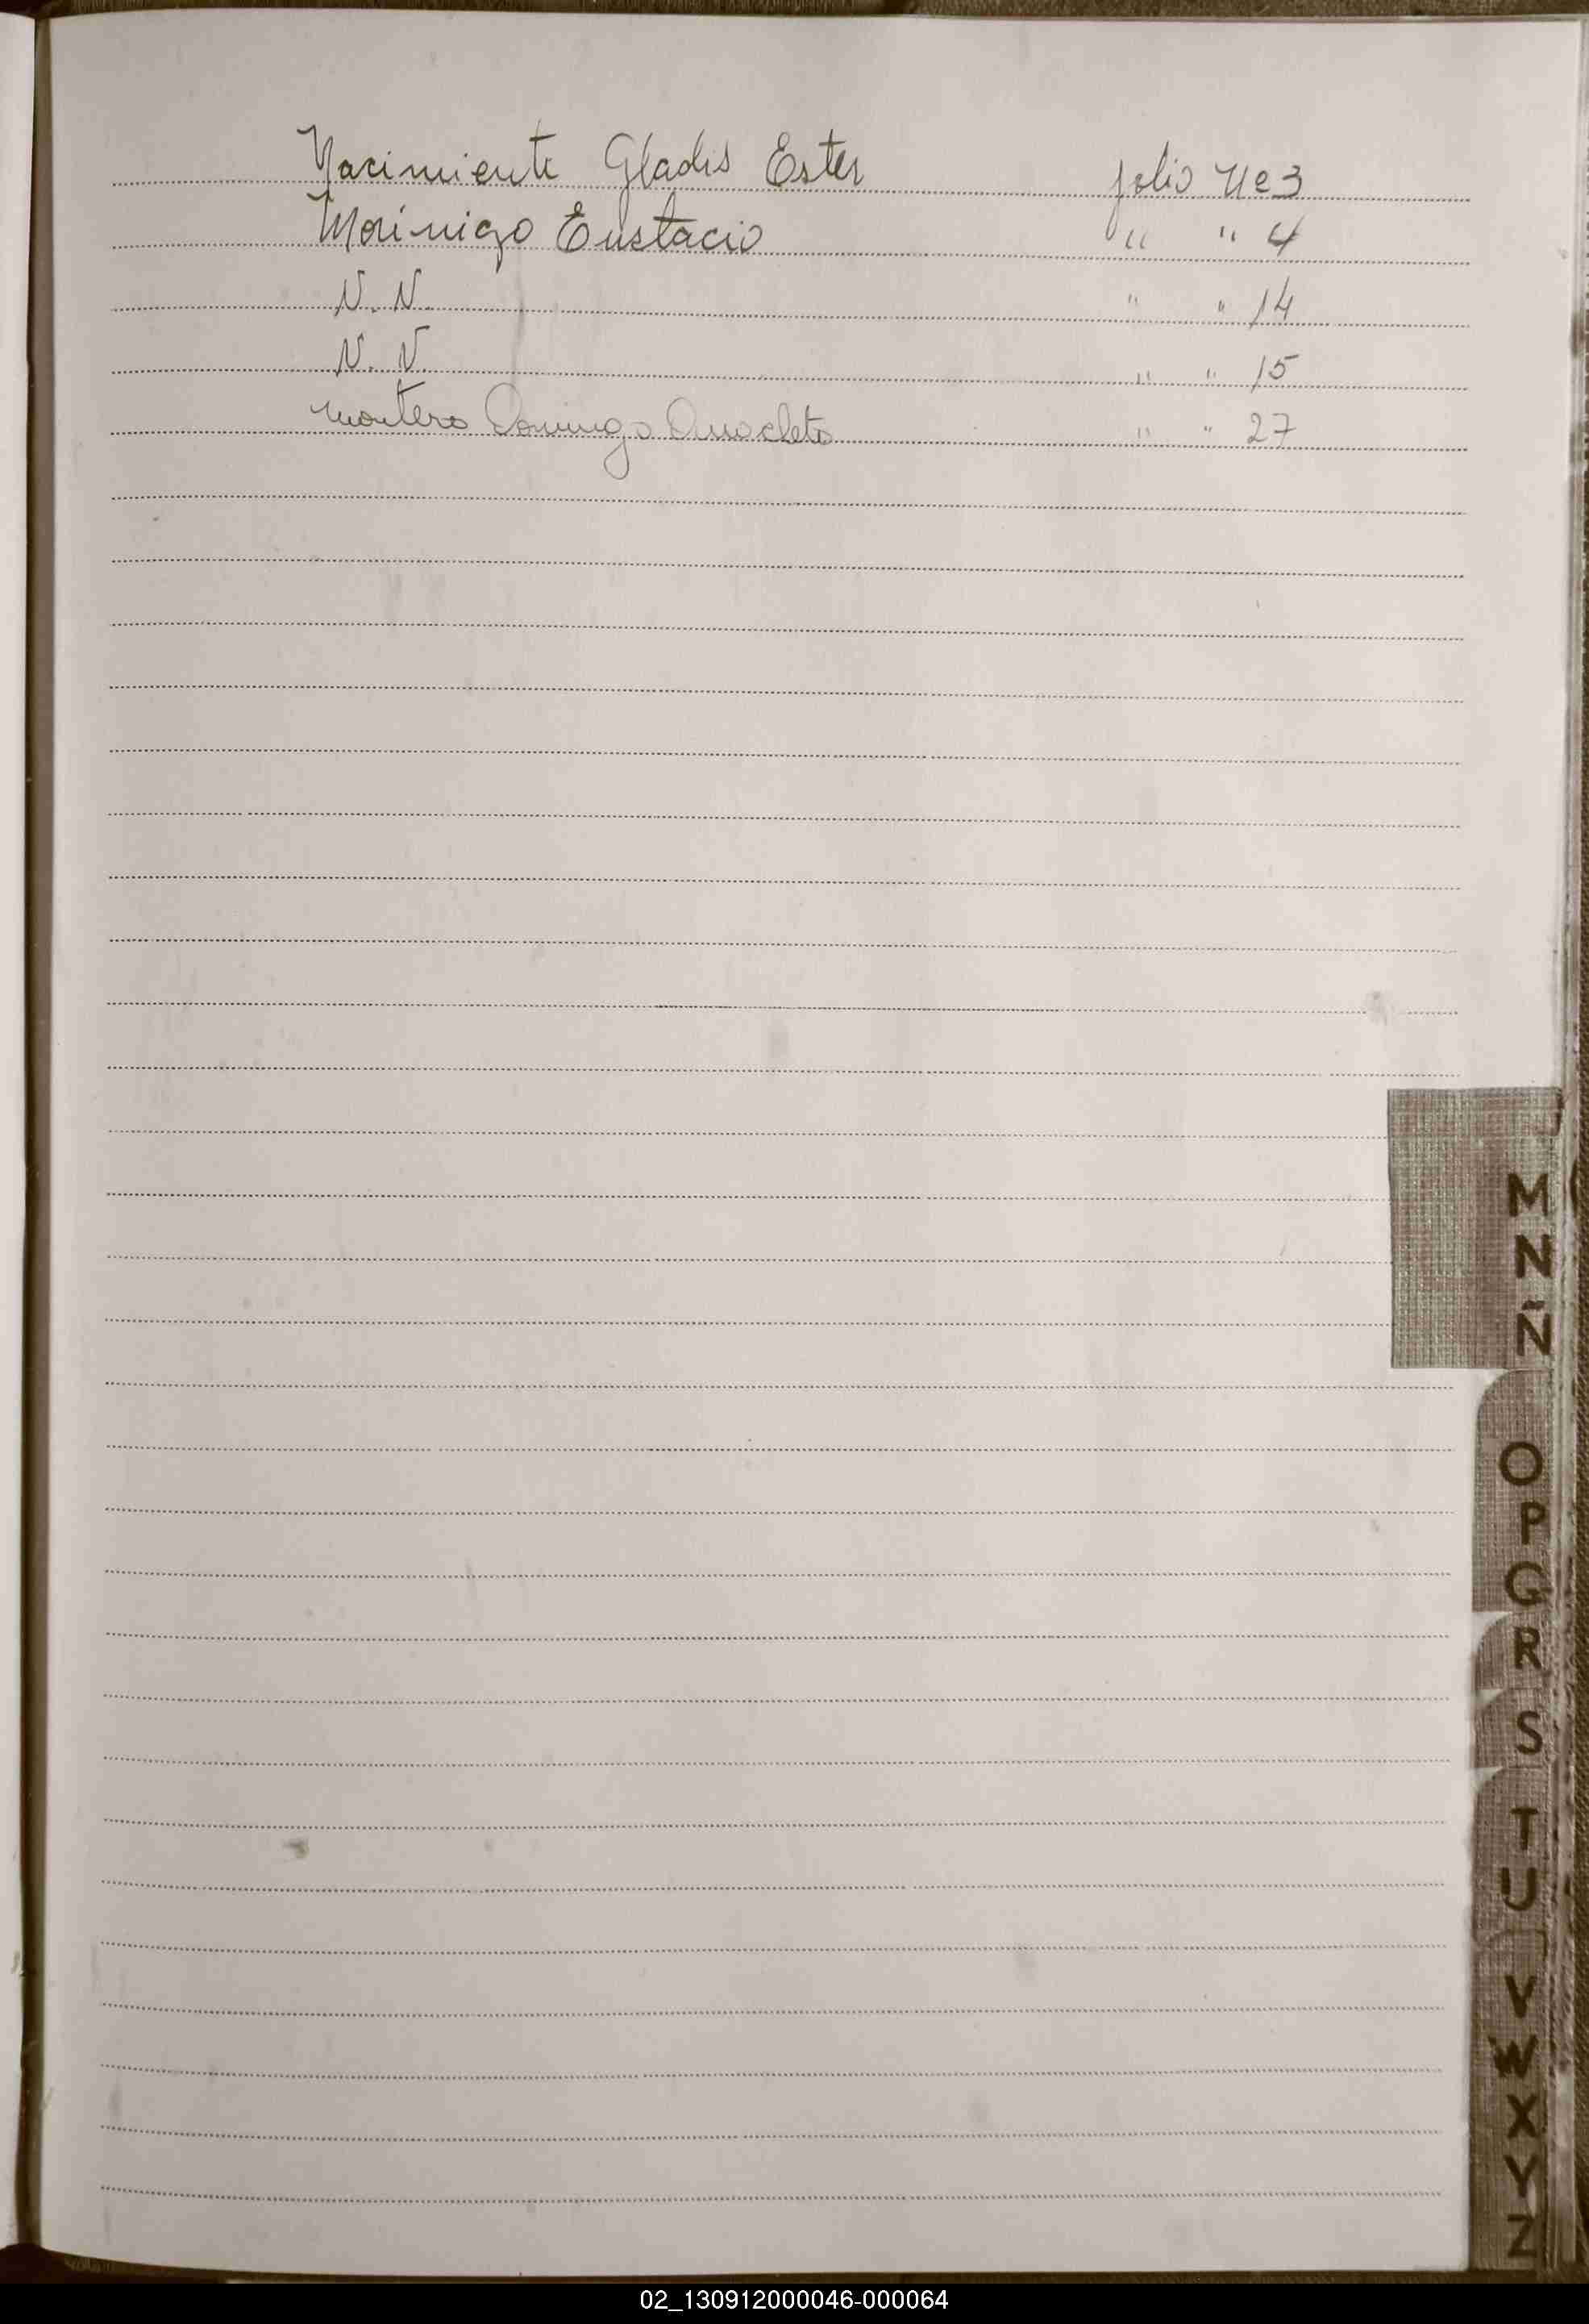 Nacimiente Gladis Ester folio Nº 3
Morinigo Eustacio " " 4
N. N. " " 14
N. N. " " 15
Montero Domingo Anacleto " " 27
M
N
Ñ
O
P
Q
R
S
T
U
V
W
X
Y
Z
02_130912000046-000064